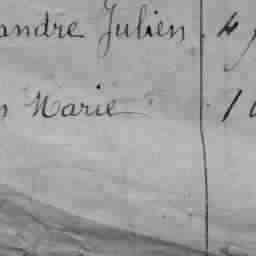 andre Julien 4
Marie 10